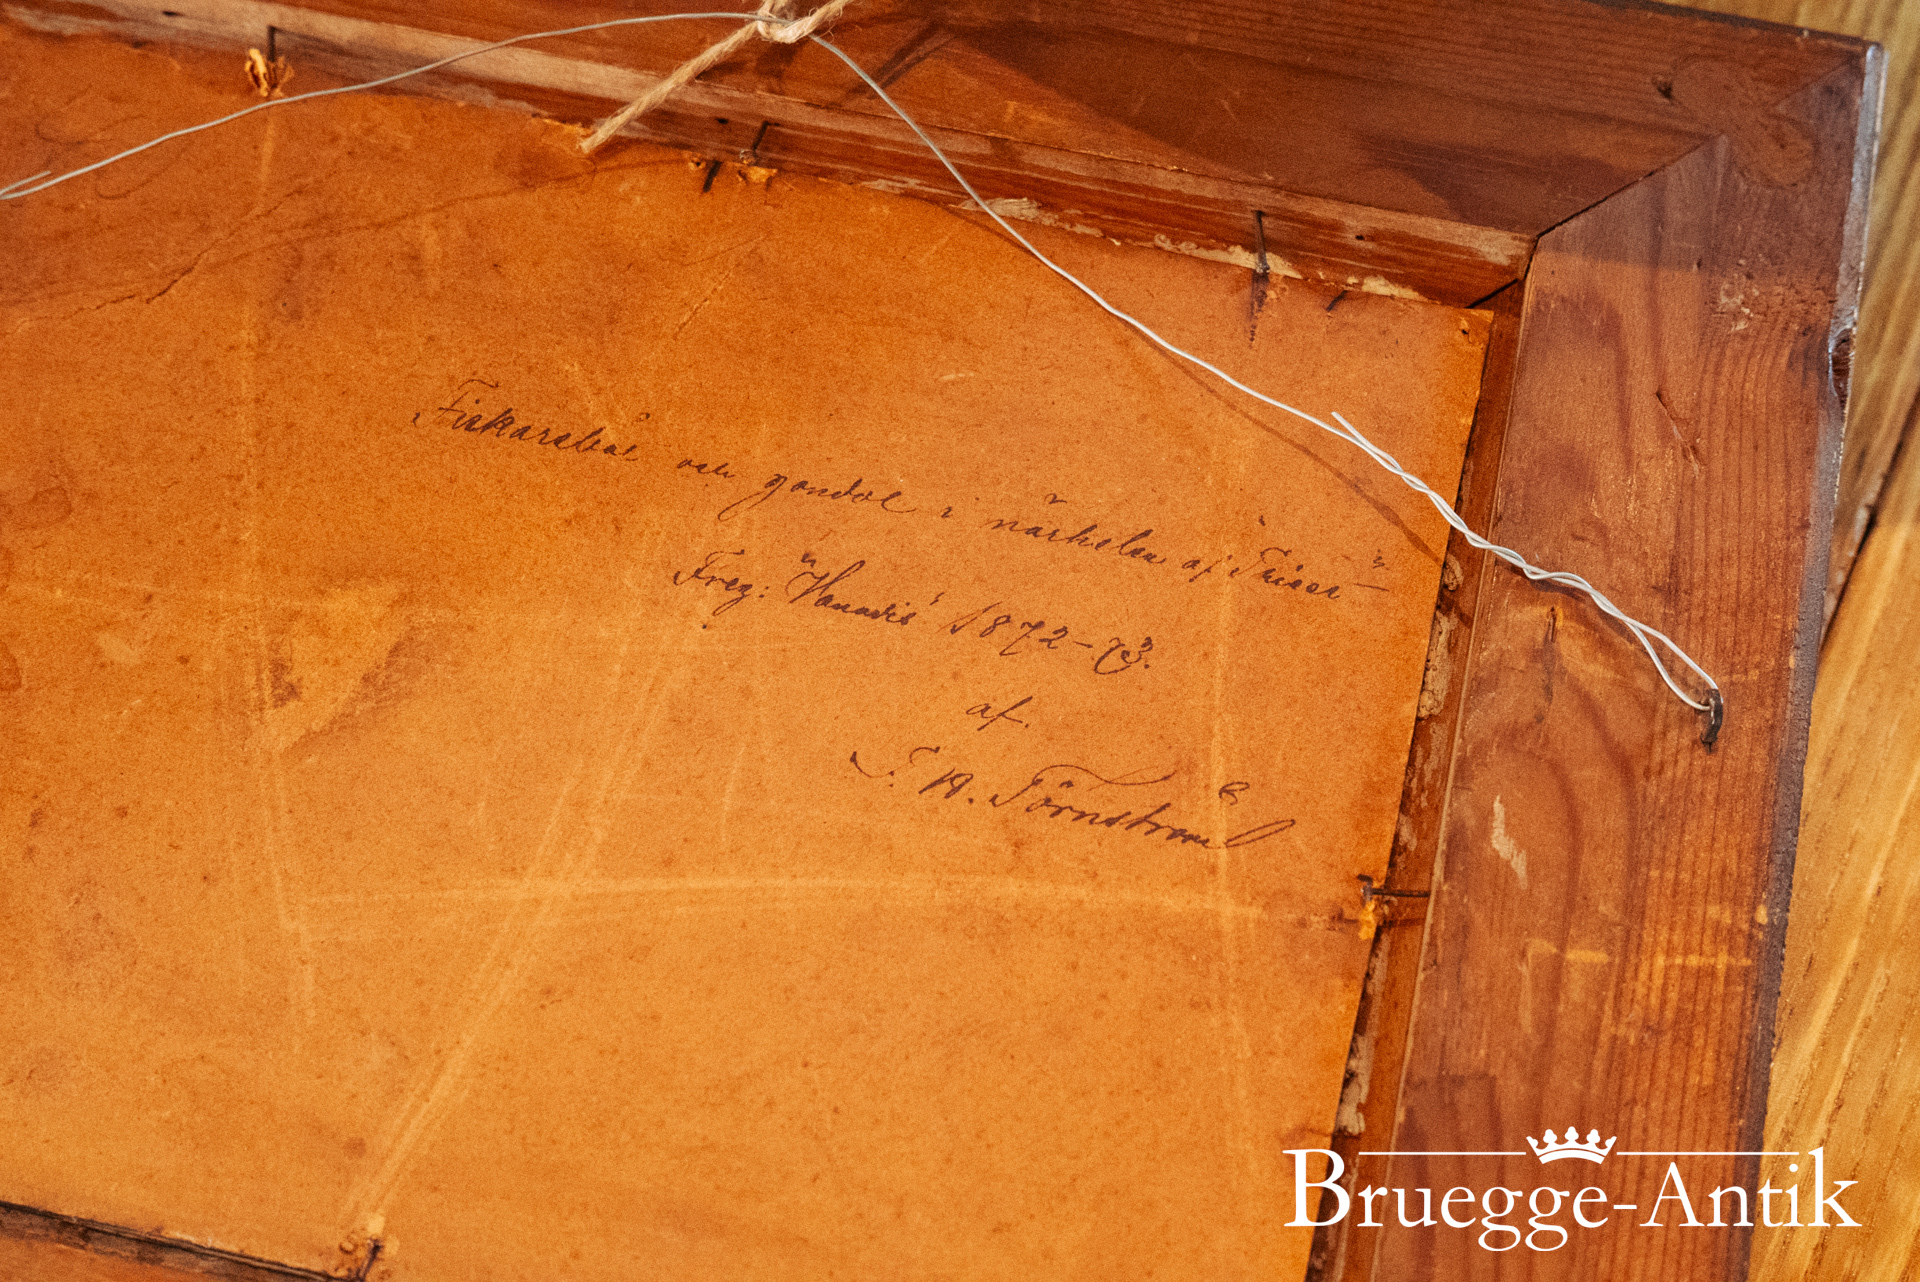 Fiskarebåt och gondol i närheten af Triest -
Freg: "Vanadis" 1872-73.
af.
J. W. Törnstrand
Bruegge-Antik